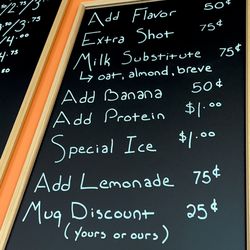 Add Flavor 50¢
Extra Shot 75¢
Milk Substitute 75¢
↳ oat, almond, breve
Add Banana 50¢
Add Protein $1.00
Special Ice $1.00
Add Lemonade 75¢
Mug Discount 25¢
(yours or ours)